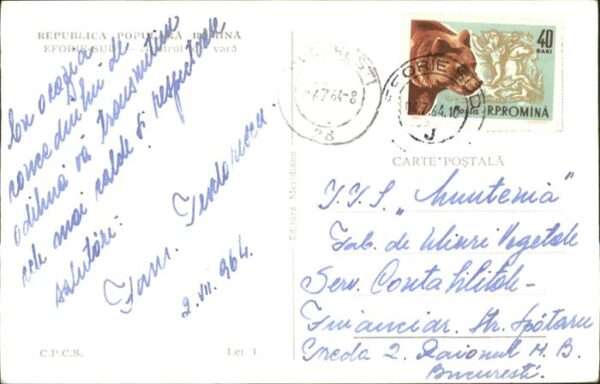 REPUBLICA POPULARĂ ROMÎNĂ
EFORIE SUD - de vară
Cu ocazia
concediului de
odihnă vă transmitem
cele mai calde și respectoase
salutări:
Fam. Teodorescu
2.VII.964.
C.P.C.S.
Lei 1
Editura Meridiane
BUCUREȘTI
7.64-8
EFORIE SUD
7.64.10
J
40
BANI
R.P.ROMINA
CARTE POȘTALĂ
I.I.S. „Muntenia"
Fab. de Uleiuri Vegetale
Serv. Contabilitate-
Financiar. Str. Spătaru
Preda 2. Raionul N. B.
București.